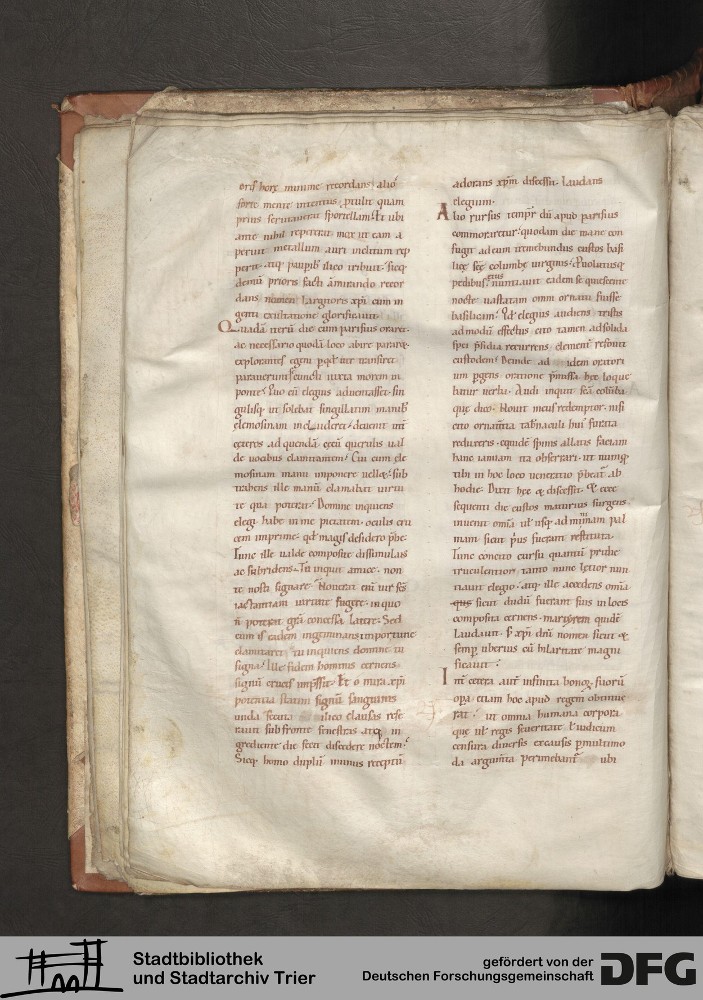 oris hore minime recordans, alio
forte mente intentus, ptulit quam
prius seruauerat sportellam. Et ubi
ante nihil repererat mox ut eam a
peruit metallum auri inclitum rep
perit. atq; paupib; ilico tribuit. sicq;
demū prioris facti āmirando recor
dans nomen largitoris xp̄i cum in
genti exultatione glorificauit.
Quadā iterū die cum parisius oraret.
ac necessario quodā loco abire pararet.
explorantes egeni p qd iter transiret
parauerunt se cuncti iuxta morem in
ponte. Quo cū elegius aduentasset. sin
gulisq; ut solebat singillatim manib;
elemosinam includeret. deuenit int
ceteros ad quendā cecū querulis ual
de uocibus clamitantem. Cui cum ele
mosinam manu imponere uellet. sub
trahens ille manū clamabat uirtu
te qua poterat. Domine inquiens
elegi habe in me pietatem. oculis cru
cem imprime. qd magis desidero p̄be.
Tunc ille ualde composite dissimulans
ac subridens. Tu inquit amice. non
te nosti signare. Nouerat eni uir sc̄s
iactantiam uirtute fugere. in quo
n̄ poterat gr̄a concessa latere. Sed
cum is eadem ingeminans importune
clamitaret. tu inquiens domine tu
signa. Ille fidem hominis cernens.
signū crucis imp̄ssit. Et o mira xp̄i
potentia statim signū sanguinis
unda secuta ilico clausas rese
rauit sub fronte fenestras atq; in
grediente die fecit discedere noctem.
Sicq; homo duplū munus receptū
adorans xp̄m discessit. laudans
elegium.
Alio rursus tempr̄ dū apud parisius
commoraretur. quodam die mane con
fugit ad eum tremebundus custos basi
lice sc̄e columbe uirginis. Puolutusq;
pedibus eius nuntiauit eadem se quiescente
nocte uastatam omni ornatu fuisse
basilicam. Qd elegius audiens tristis
admodū effectus. cito tamen ad solida
spei p̄sidia recurrens clement̄ refouit
custodem. Deinde ad idem oratori
um pgens oratione p̄missa hec loque
batur uerba. Audi inquit sc̄a colūba
que dico. Nouit meus redemptor. nisi
cito ornam̄ta tab̄naculi hui furata
reduxeris. equidē spinis allatis faciam
hanc ianuam ita obserrari. ut nunq;
tibi in hoc loco ueneratio p̄beat̄ ab
hodie. Dixit hec & discessit. & ecce
sequenti die custos maturius surgens.
inuenit omīa ul usq; ad minimam pal
mam sicut p̄us fuerant restituta.
Tunc concito cursu quantū pridie
truculentior. tanto nunc letior nun
tiauit elegio. atq; ille accedens omīa
quę sicut dudū fuerant suis in locis
composita cernens. martyrem quidē
laudauit. s; xp̄i dn̄i nomen sicut &
semp̄ uberius cū hilaritate magni
ficauit.
Int̄ cetera aut̄ infinita bonoꝝ suorū
opa etiam hoc apud regem obtinue
rat. ut omnia humana corpora
que ul regis seueritate l iudicum
censura diuersis ex causis p multimo
da argum̄ta perimebant̄ ubi
Stadtbibliothek
und Stadtarchiv Trier
gefördert von der
Deutschen Forschungsgemeinschaft
DFG